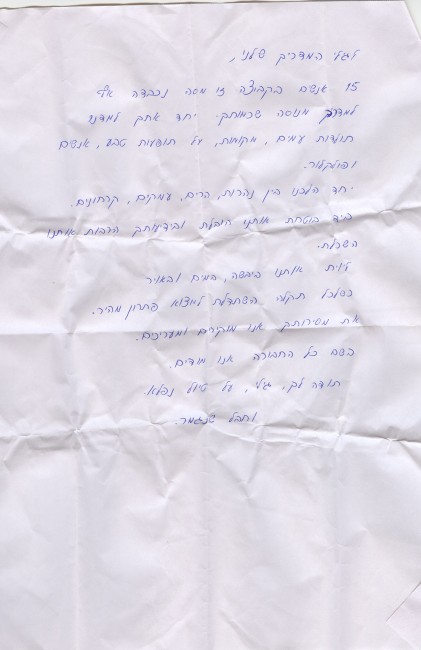 לגלי המדריך שלנו,
15 אנשים בקבוצה זו מסה נכבדה אף
למדריך מנוסה שכמותך. יחד אתך למדנו
תולדות עמים, מקומות, על תופעות טבע, אנשים
ופולקלור.
יחד הלכנו בין נהרות, הרים, עמקים, קרחונים.
ביד בוטחת אותנו הובלת ובידיעותך הרבות אותנו
השכלת.
לווית אותנו ביבשה, במים ובאויר
כשלכל תקלה השתדלת למצוא פתרון מהיר.
את מסירותך אנו מוקירים ומעריכים.
בשם כל החבורה אנו מודים.
תודה לך, גלי, על טיול נפלא.
וחבל שנגמר.